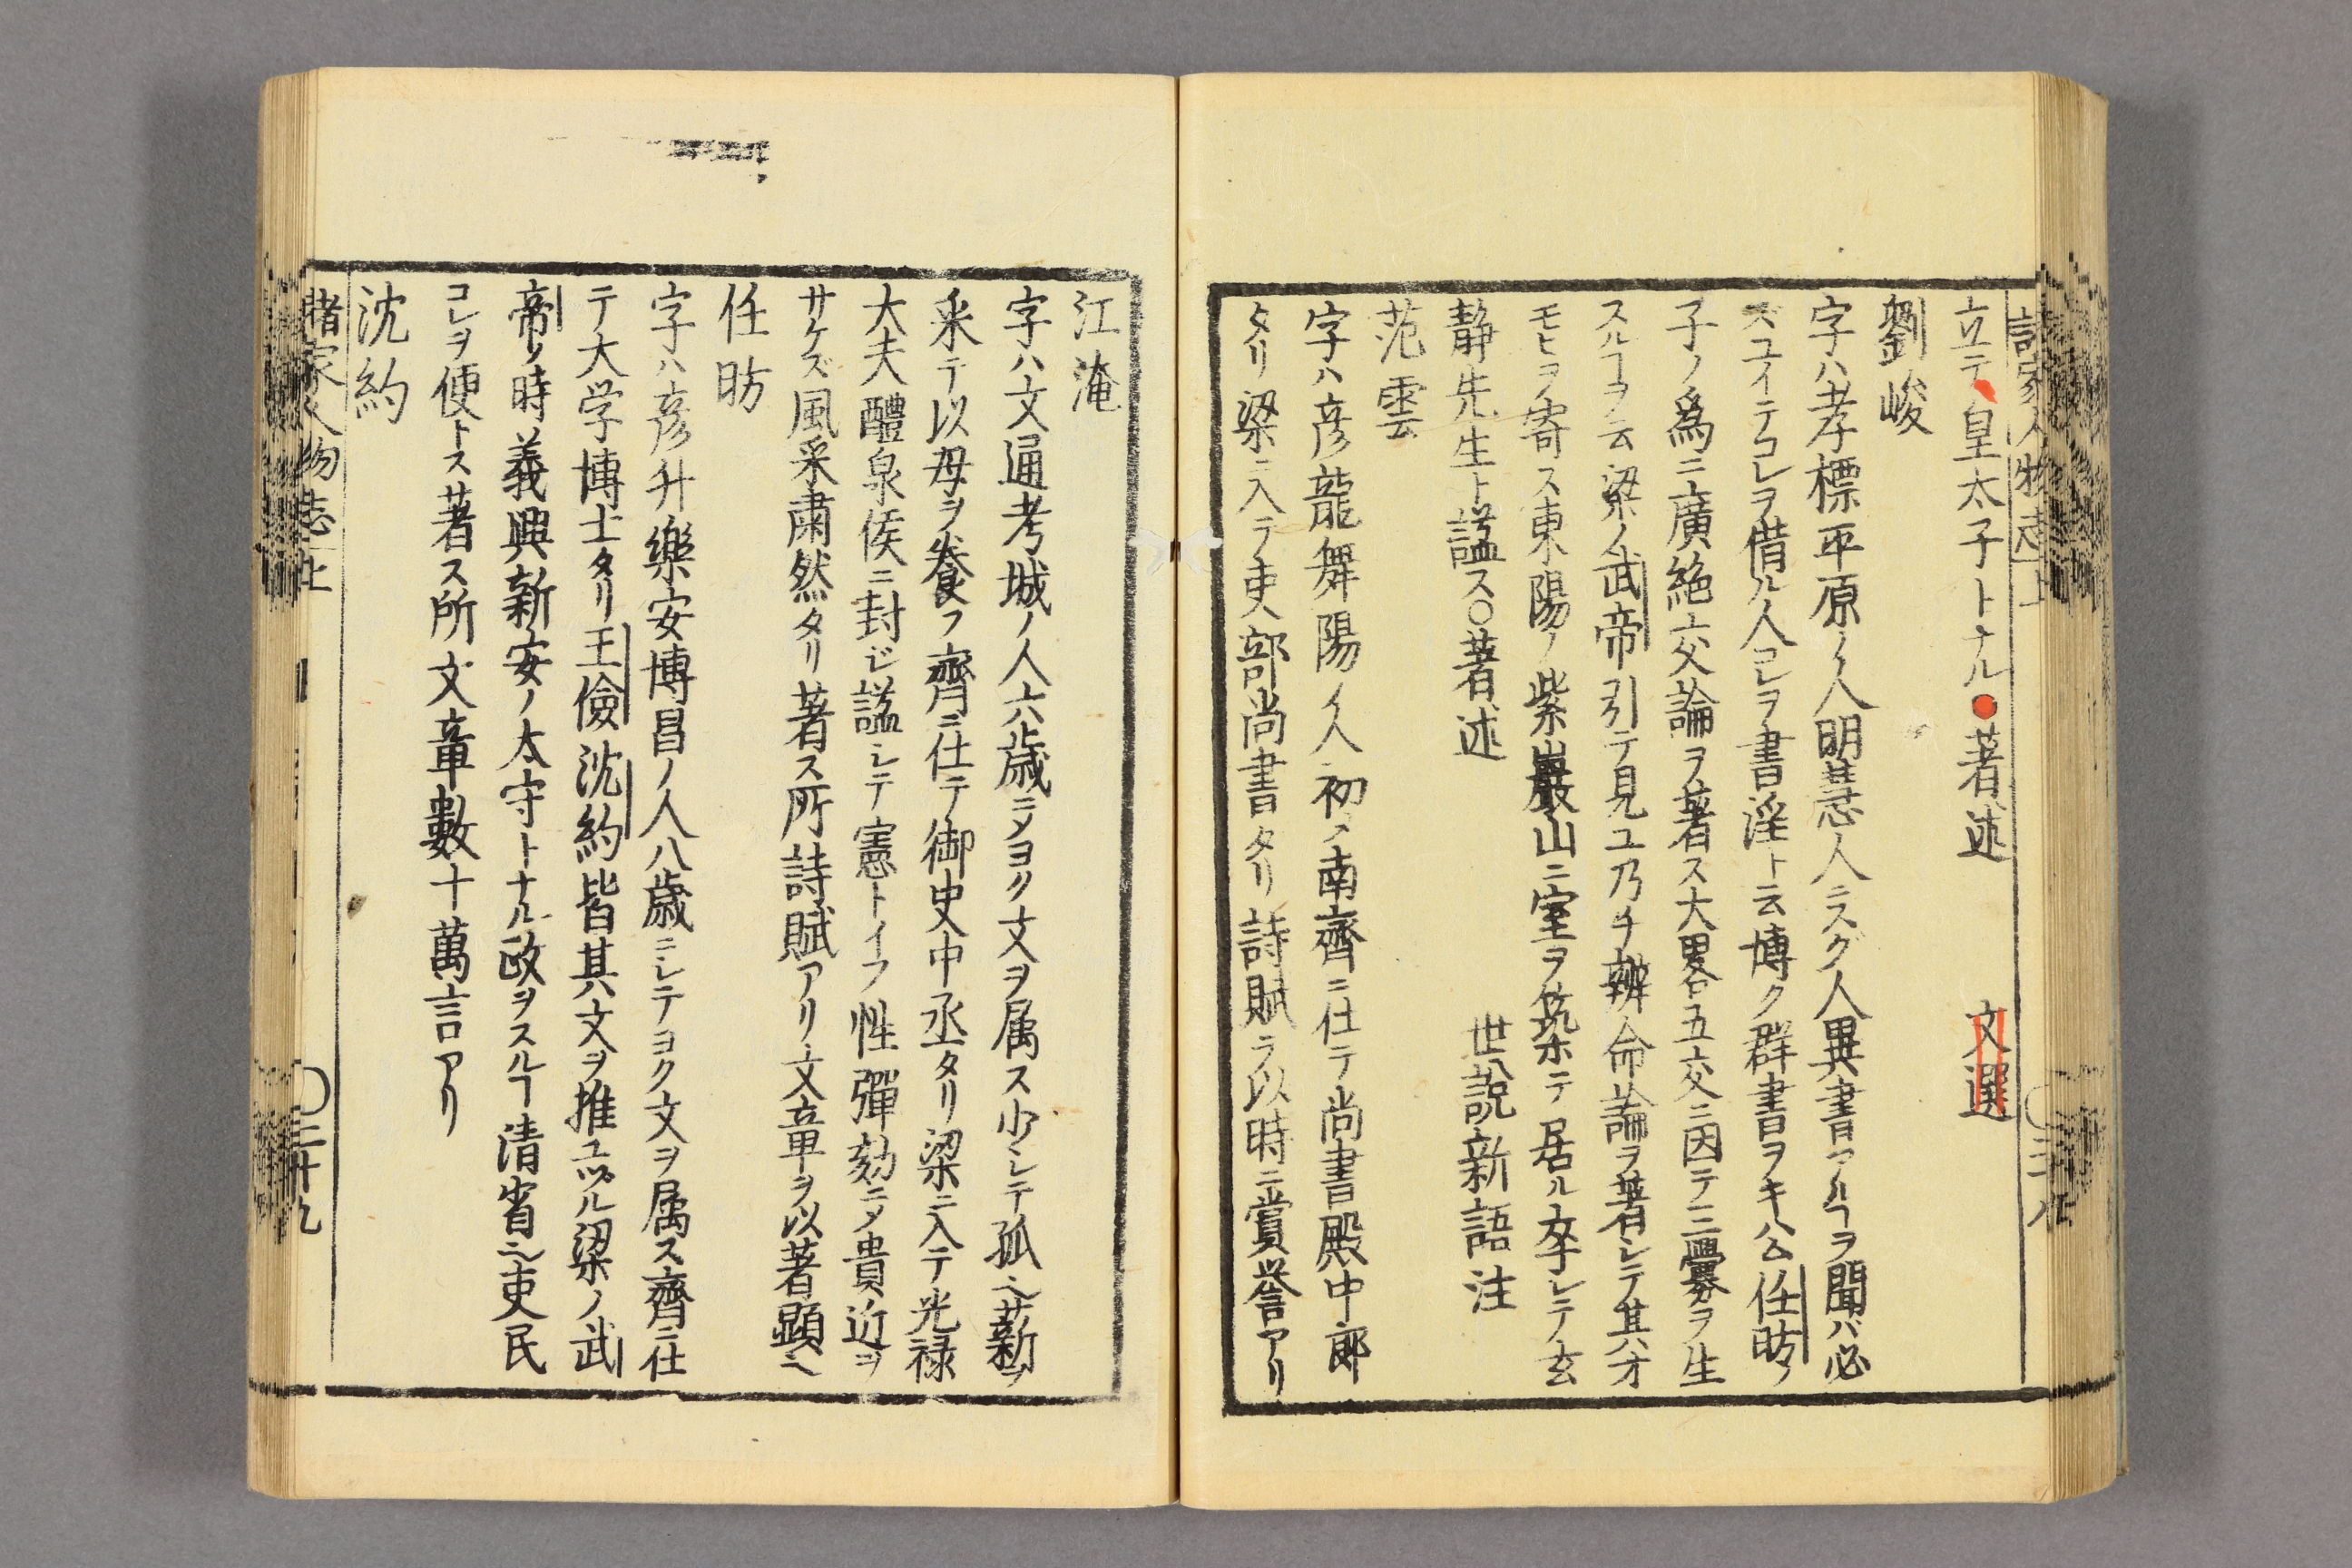 立テ皇太子トナル●著述　文選
劉峻
字ハ孝標平原ノ人明慧人ニスグ人異書アルヿヲ聞バ必
ズユイテコレヲ借ル人コレヲ書淫ト云博ク群書ヲキハム任昉ノ
子ノ為ニ廣絶交論ヲ著ス大畧五交ニ因テ三釁ヲ生
スルヿヲ云梁ノ武帝引テ見ユ乃チ辨命論ヲ著シテ其オ
モヒヲ寄ス東陽ノ紫巖山ニ室ヲ築テ居ル卒シテ玄
静先生ト謚ス○著述　世說新語注
范雲
字ハ彦龍舞陽ノ人初メ南齊ニ仕テ尚書殿中郎
タリ梁ニ入テ吏部尚書タリ詩賦ヲ以時ニ賞誉アリ
江淹
字ハ文通考城ノ人六歳ニメヨク文ヲ属ス少シテ孤也薪ヲ
采テ以母ヲ養フ齊ニ仕テ御史中丞タリ梁ニ入テ光禄
大夫醴泉侯ニ封ジ謚シテ憲トイフ性彈劾ニメ貴近ヲ
サケズ風采粛然タリ著ス所詩賦アリ文章ヲ以著顕也
任昉
字ハ彦升樂安博昌ノ人八歳ニシテヨク文ヲ属ス齊ニ仕
テ大学博士タリ王儉沈約皆其文ヲ推ユヅル梁ノ武
帝ノ時義興新安ノ太守トナル政ヲスルヿ清省也吏民
コレヲ便トス著ス所文章數十萬言アリ
沈約
諸家人物志上　○三十九